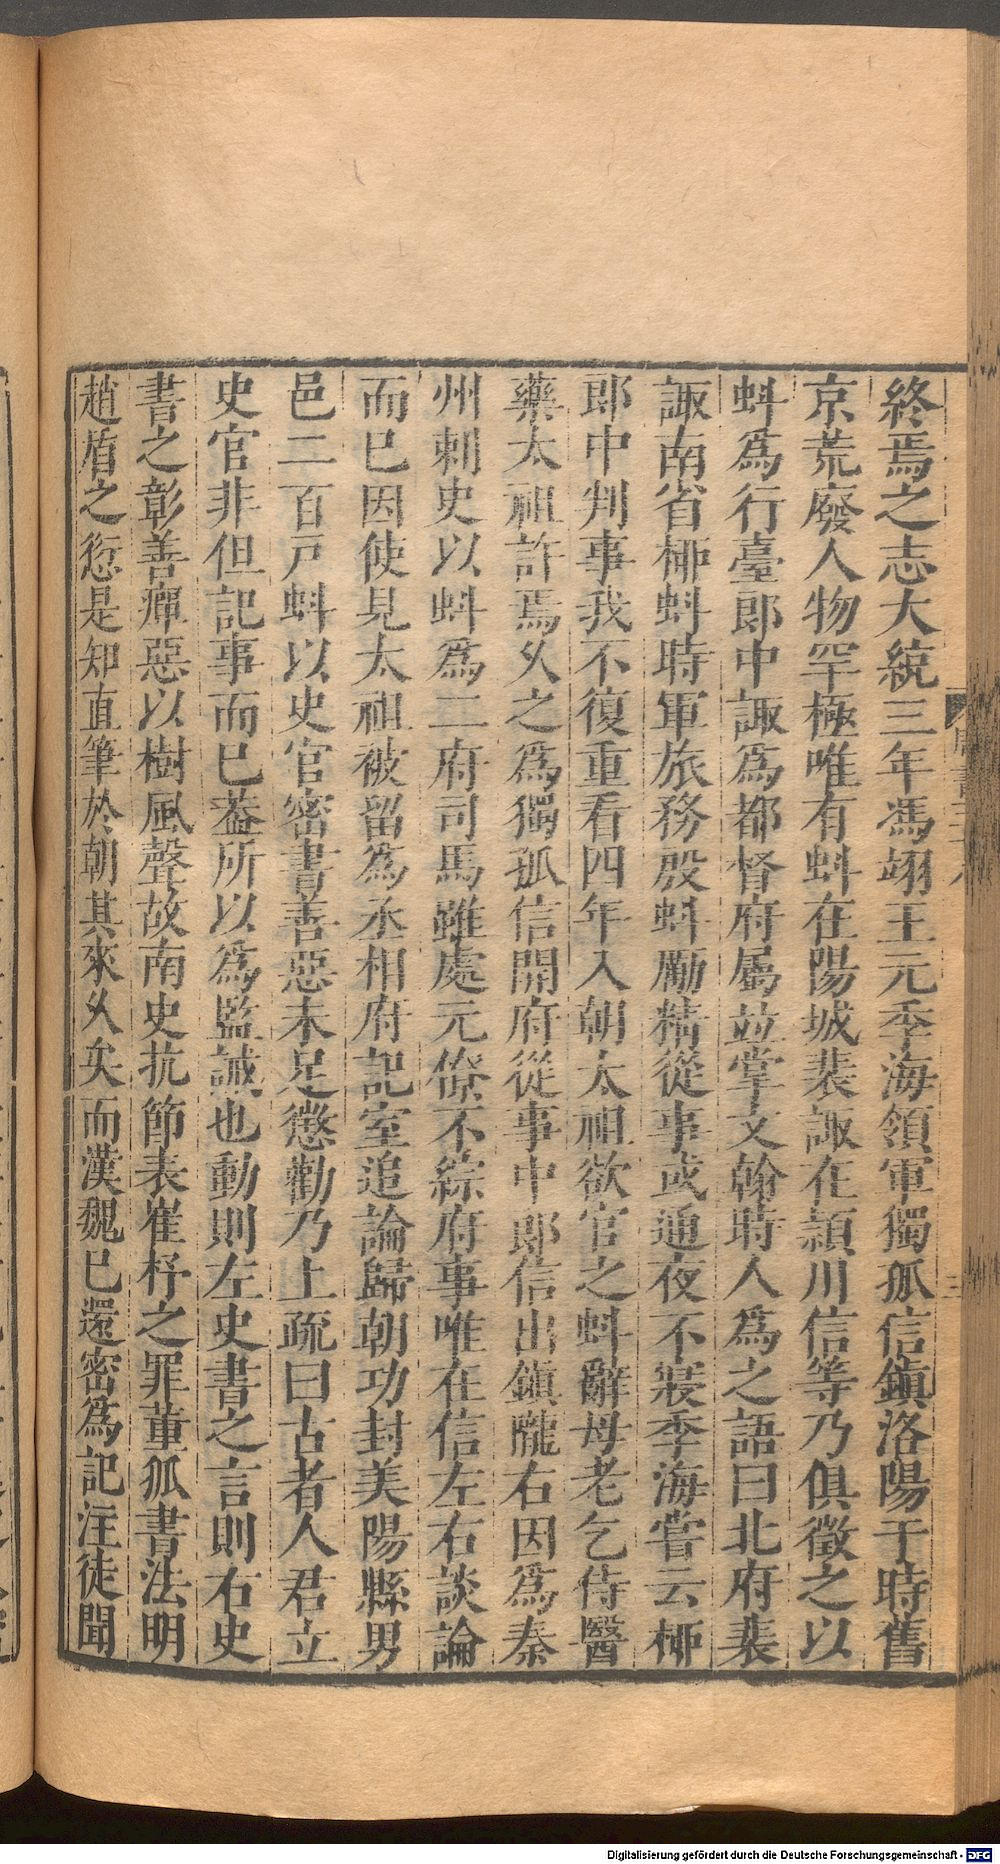 終焉之志大統三年馮翊王元季海領軍獨孤信鎮洛陽于時舊
京荒廢人物罕極唯有蚪在陽城裴諏在潁川信等乃俱徵之以
蚪為行臺郎中諏為都督府屬並掌文翰時人為之語曰北府裴
諏南省桺蚪時軍旅務殷蚪勵精從事或通夜不寢季海嘗云桺
郎中判事我不復重看四年入朝太祖欲官之蚪辭母老乞侍醫
藥太祖許焉乆之為獨孤信開府從事中郎信出鎮隴右因為秦
州刺史以蚪為二府司馬雖處元僚不綜府事唯在信左右談論
而已因使見太祖被留為丞相府記室追論歸朝功封美陽縣男
邑二百戸蚪以史官密書善惡未足懲勸乃上疏曰古者人君立
史官非但記事而已葢所以為監誡也動則左史書之言則右史
書之彰善癉惡以樹風聲故南史抗節表崔杼之罪董狐書法明
趙盾之愆是知直筆於朝其來乆矣而漢魏已還密為記注徒聞
Digitalisierung gefördert durch die Deutsche Forschungsgemeinschaft - DFG